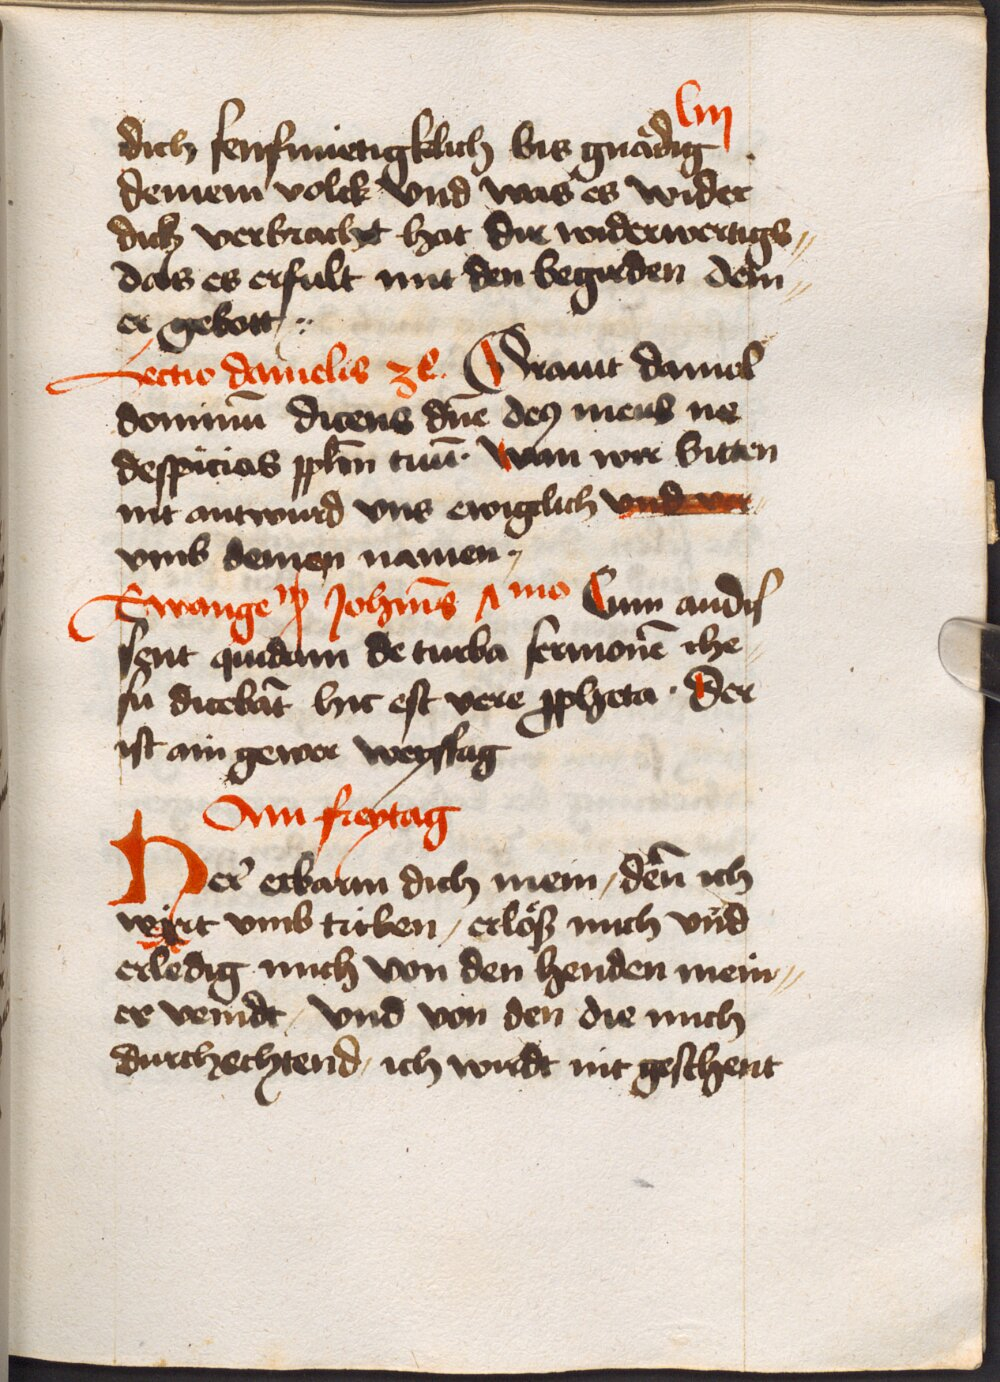 liij
dich senfmietigklich bis gnädig
deinem volck Vnd was es wider
dich verbracht hat die widerwertigs
das es erfult mit den begirden dein
er gebott
Lectio danielis 3e Orauit daniel
dominū dicens dn̄e deꝰ meus ne
despicias pplm̄ tuū · Wan wir bitten
nit antwurd vns ewigclich vnd ver
vmb deinen namen
Ewange Johan̄is Cum audis
sent quidam de turba sermonē ihe
su dicebāt hic est vere ꝓpheta · Der
ist ain gewor weyssag
Am freytag
Her erbarm dich mein / den̄ ich
wirt vmb triben / erlöß mich vnd
erledig mich von den henden mein
er veindt / Vnd von den die mich
durchechtend / ich wirdt nit geschent